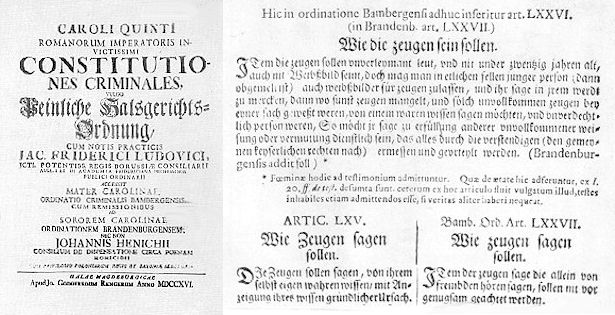 CAROLI QUINTI
ROMANORUM IMPERATORIS IN-
VICTISSIMI
CONSTITUTIO-
NES CRIMINALES,
VULGO
Peinliche Halsgerichts-
Ordnung,
CUM NOTIS PRACTICIS
JAC. FRIDERICI LUDOVICI,
ICTI, POTENTISS. REGIS BORUSSIÆ CONSILIARII
PUBLICI ORDINARII
ACCESSIT
MATER CAROLINÆ,
ORDINATIO CRIMINALIS BAMBERGENSIS,
CUM REMISSIONIBUS
AD
SOROREM CAROLINÆ,
ORDINATIONEM BRANDENBURGENSEM;
NEC NON
JOHANNIS HENICHII
CONSILIUM DE DISPENSATIONE CIRCA POENAM
HOMICIDII
HALÆ MAGDEBURGICÆ
Apud Jo. GODOFREDUM RENGERUM ANNO MDCCXVI.
Hic in ordinatione Bambergensi adhuc inseritur art. LXXVI.
(in Brandenb. art. LXXVII)
Wie die zeugen sein sollen.
JTem die zeugen sollen unverleymant leut, und nit under zwentzig jahren alt,
auch nit Weibßbild seint, doch mag man in etlichen fellen junger person (dann
obgemelt ist) auch weibßbilder für zeugen zulassen, und ihr sage in jrem werdt
zu mercken, dann wo sunst zeugen mangelt, und solch unvolkommen zeugen bey
eyner sach gewest weren, von eynem waren wissen sagen möchten, und unverdecht-
lich person weren, So möcht jr sage zu erfüllung anderer unvollkommener wei-
sung oder vermutung dienstlich sein, das alles durch die verstendigen (den gemey-
nen keyserlichen rechten nach) ermessen und georteylt werden. (Brandenbur-
gensis addit soll) *
* Fœminæ hodie ad testimonium admittuntur. Quæ de ætate hic adferuntur, ex l.
20. ff de test. desumta sunt. ceterum ex hoc articulo fluit vulgatum illud, testes
inhabiles etiam admittendos esse, si veritas aliter haberi nequeat.
ARTIC. LXV.
Wie Zeugen sagen
sollen.
DJe Zeugen sollen sagen, von ihrem
selbst eigen wahren wissen, mit An-
zeigung ihres wissen gründlicher Ursach.
Bamb. Ord. Art. LXXVII.
Wie zeugen sagen
sollen.
JTem der zeugen sage die allein von
frembden hören sagen, sollen nit vor
genugsam geachtet werden.